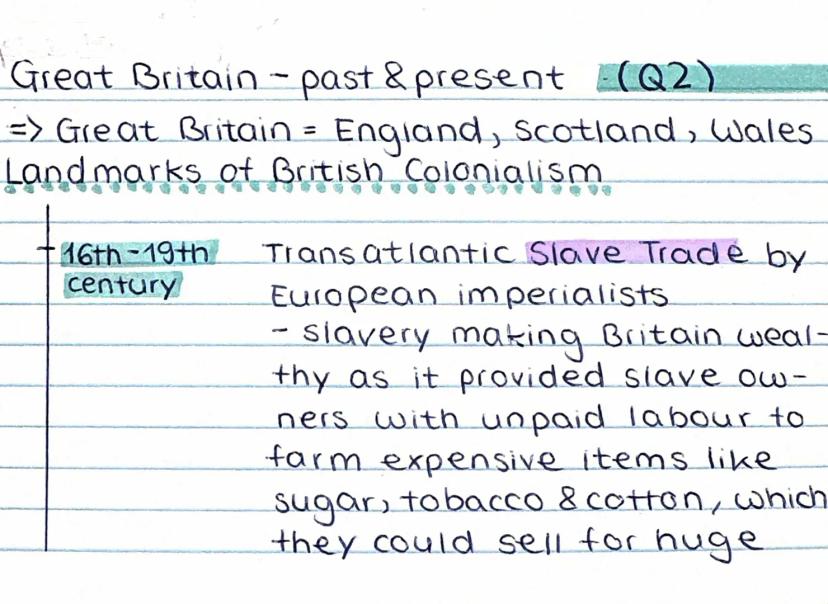 Great Britain - past & present (Q2)
=> Great Britain = England, Scotland, Wales
Landmarks of British Colonialism
16th-19th century
Transatlantic Slave Trade by
European imperialists
- slavery making Britain weal-
thy as it provided slave ow-
ners with unpaid labour to
farm expensive items like
sugar, tobacco & cotton, which
they could sell for huge